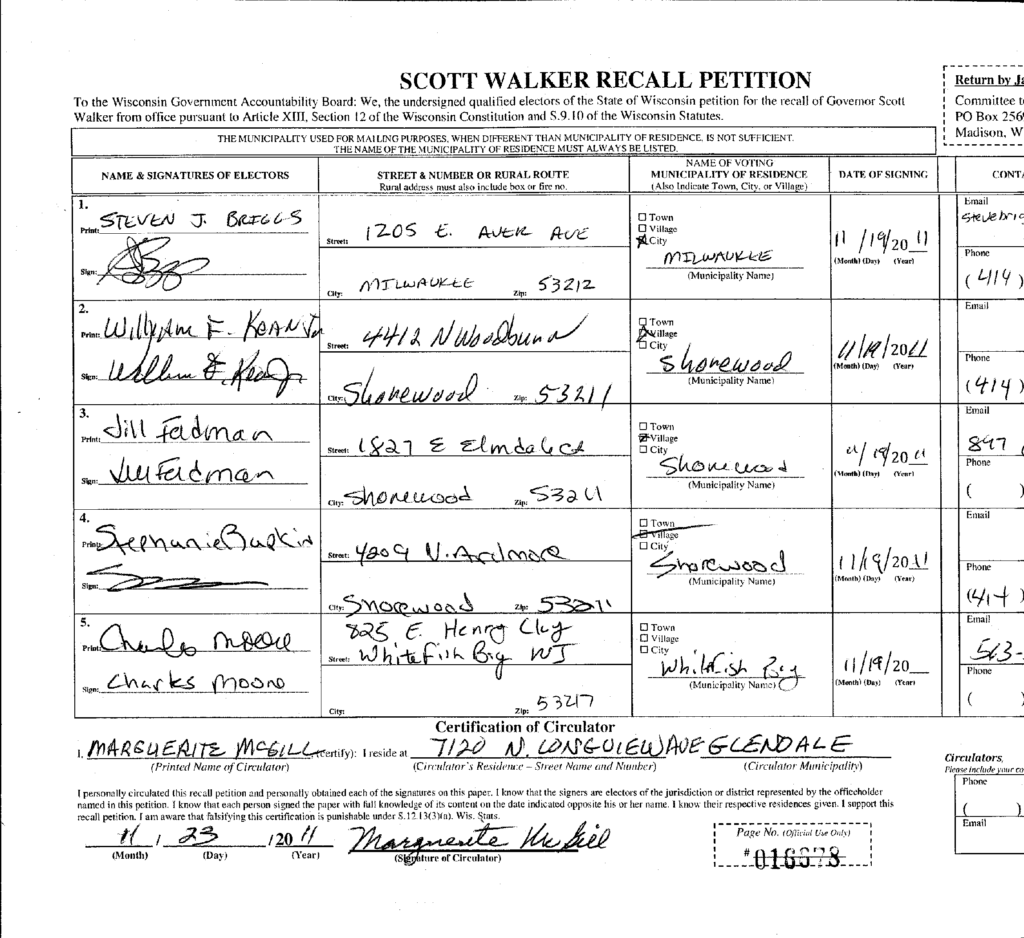 SCOTT WALKER RECALL PETITION
To the Wisconsin Government Accountability Board: We, the undersigned qualified electors of the State of Wisconsin petition for the recall of Governor Scott
Walker from office pursuant to Article XIII, Section 12 of the Wisconsin Constitution and S.9.10 of the Wisconsin Statutes.
Return by Ja
Committee to
PO Box 256
Madison, W
THE MUNICIPALITY USED FOR MAILING PURPOSES, WHEN DIFFERENT THAN MUNICIPALITY OF RESIDENCE, IS NOT SUFFICIENT.
THE NAME OF THE MUNICIPALITY OF RESIDENCE MUST ALWAYS BE LISTED.
NAME & SIGNATURES OF ELECTORS
STREET & NUMBER OR RURAL ROUTE
Rural address must also include box or fire no.
NAME OF VOTING
MUNICIPALITY OF RESIDENCE
(Also Indicate Town, City, or Village)
DATE OF SIGNING
CONTA
1.
Print: STEVEN J. BRIGGS
Sign:
Street: 1205 E. AUER AVE
City: MILWAUKEE Zip: 53212
Town
Village
City
MILWAUKEE
(Municipality Name)
11/19/2011
(Month) (Day) (Year)
Email
stevebrig
Phone
(414)
2.
Print: William F. Kean Jr
Sign: William F. Kean Jr
Street: 4412 N Woodburn
City: Shorewood Zip: 53211
Town
Village
City
Shorewood
(Municipality Name)
11/19/2011
(Month) (Day) (Year)
Email
Phone
(414)
3.
Print: Jill Feldman
Sign: Jill Feldman
Street: 1827 E Elmdale Ct
City: Shorewood Zip: 53211
Town
Village
City
Shorewood
(Municipality Name)
11/19/2011
(Month) (Day) (Year)
Email
897
Phone
( )
4.
Print: Stephanie Barkin
Sign:
Street: 4209 N. Ardmore
City: Shorewood Zip: 53211
Town
Village
City
Shorewood
(Municipality Name)
11/19/2011
(Month) (Day) (Year)
Email
Phone
(414)
5.
Print: Charles Moore
Sign: Charles Moore
825 E. Henry Clay
Street: Whitefish Bay WI
City: Zip: 53217
Town
Village
City
Whitefish Bay
(Municipality Name)
11/19/20
(Month) (Day) (Year)
Email
563-
Phone
( )
Certification of Circulator
I, MARGUERITE McGILL (certify): I reside at 7120 N. LONGVIEW AVE GLENDALE
(Printed Name of Circulator) (Circulator's Residence – Street Name and Number) (Circulator Municipality)
I personally circulated this recall petition and personally obtained each of the signatures on this paper. I know that the signers are electors of the jurisdiction or district represented by the officeholder
named in this petition. I know that each person signed the paper with full knowledge of its content on the date indicated opposite his or her name. I know their respective residences given. I support this
recall petition. I am aware that falsifying this certification is punishable under S.12.13(3)(a). Wis. Stats.
11 / 23 /2011 Marguerite McGill
(Month) (Day) (Year) (Signature of Circulator)
Page No. (Official Use Only)
#016678
Circulators,
Please include your co
Phone
( )
Email